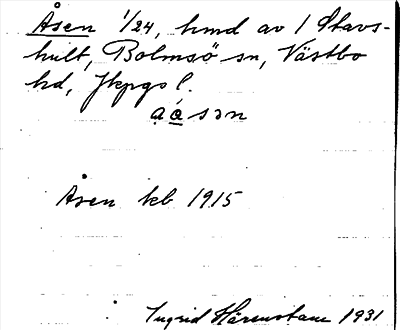 Åsen 1/24, hmd av 1 Stavs-
hult, Bolmsö sn, Västbo
hd, Jkpgs l.
Åsen kb 1915
Ingrid 1931